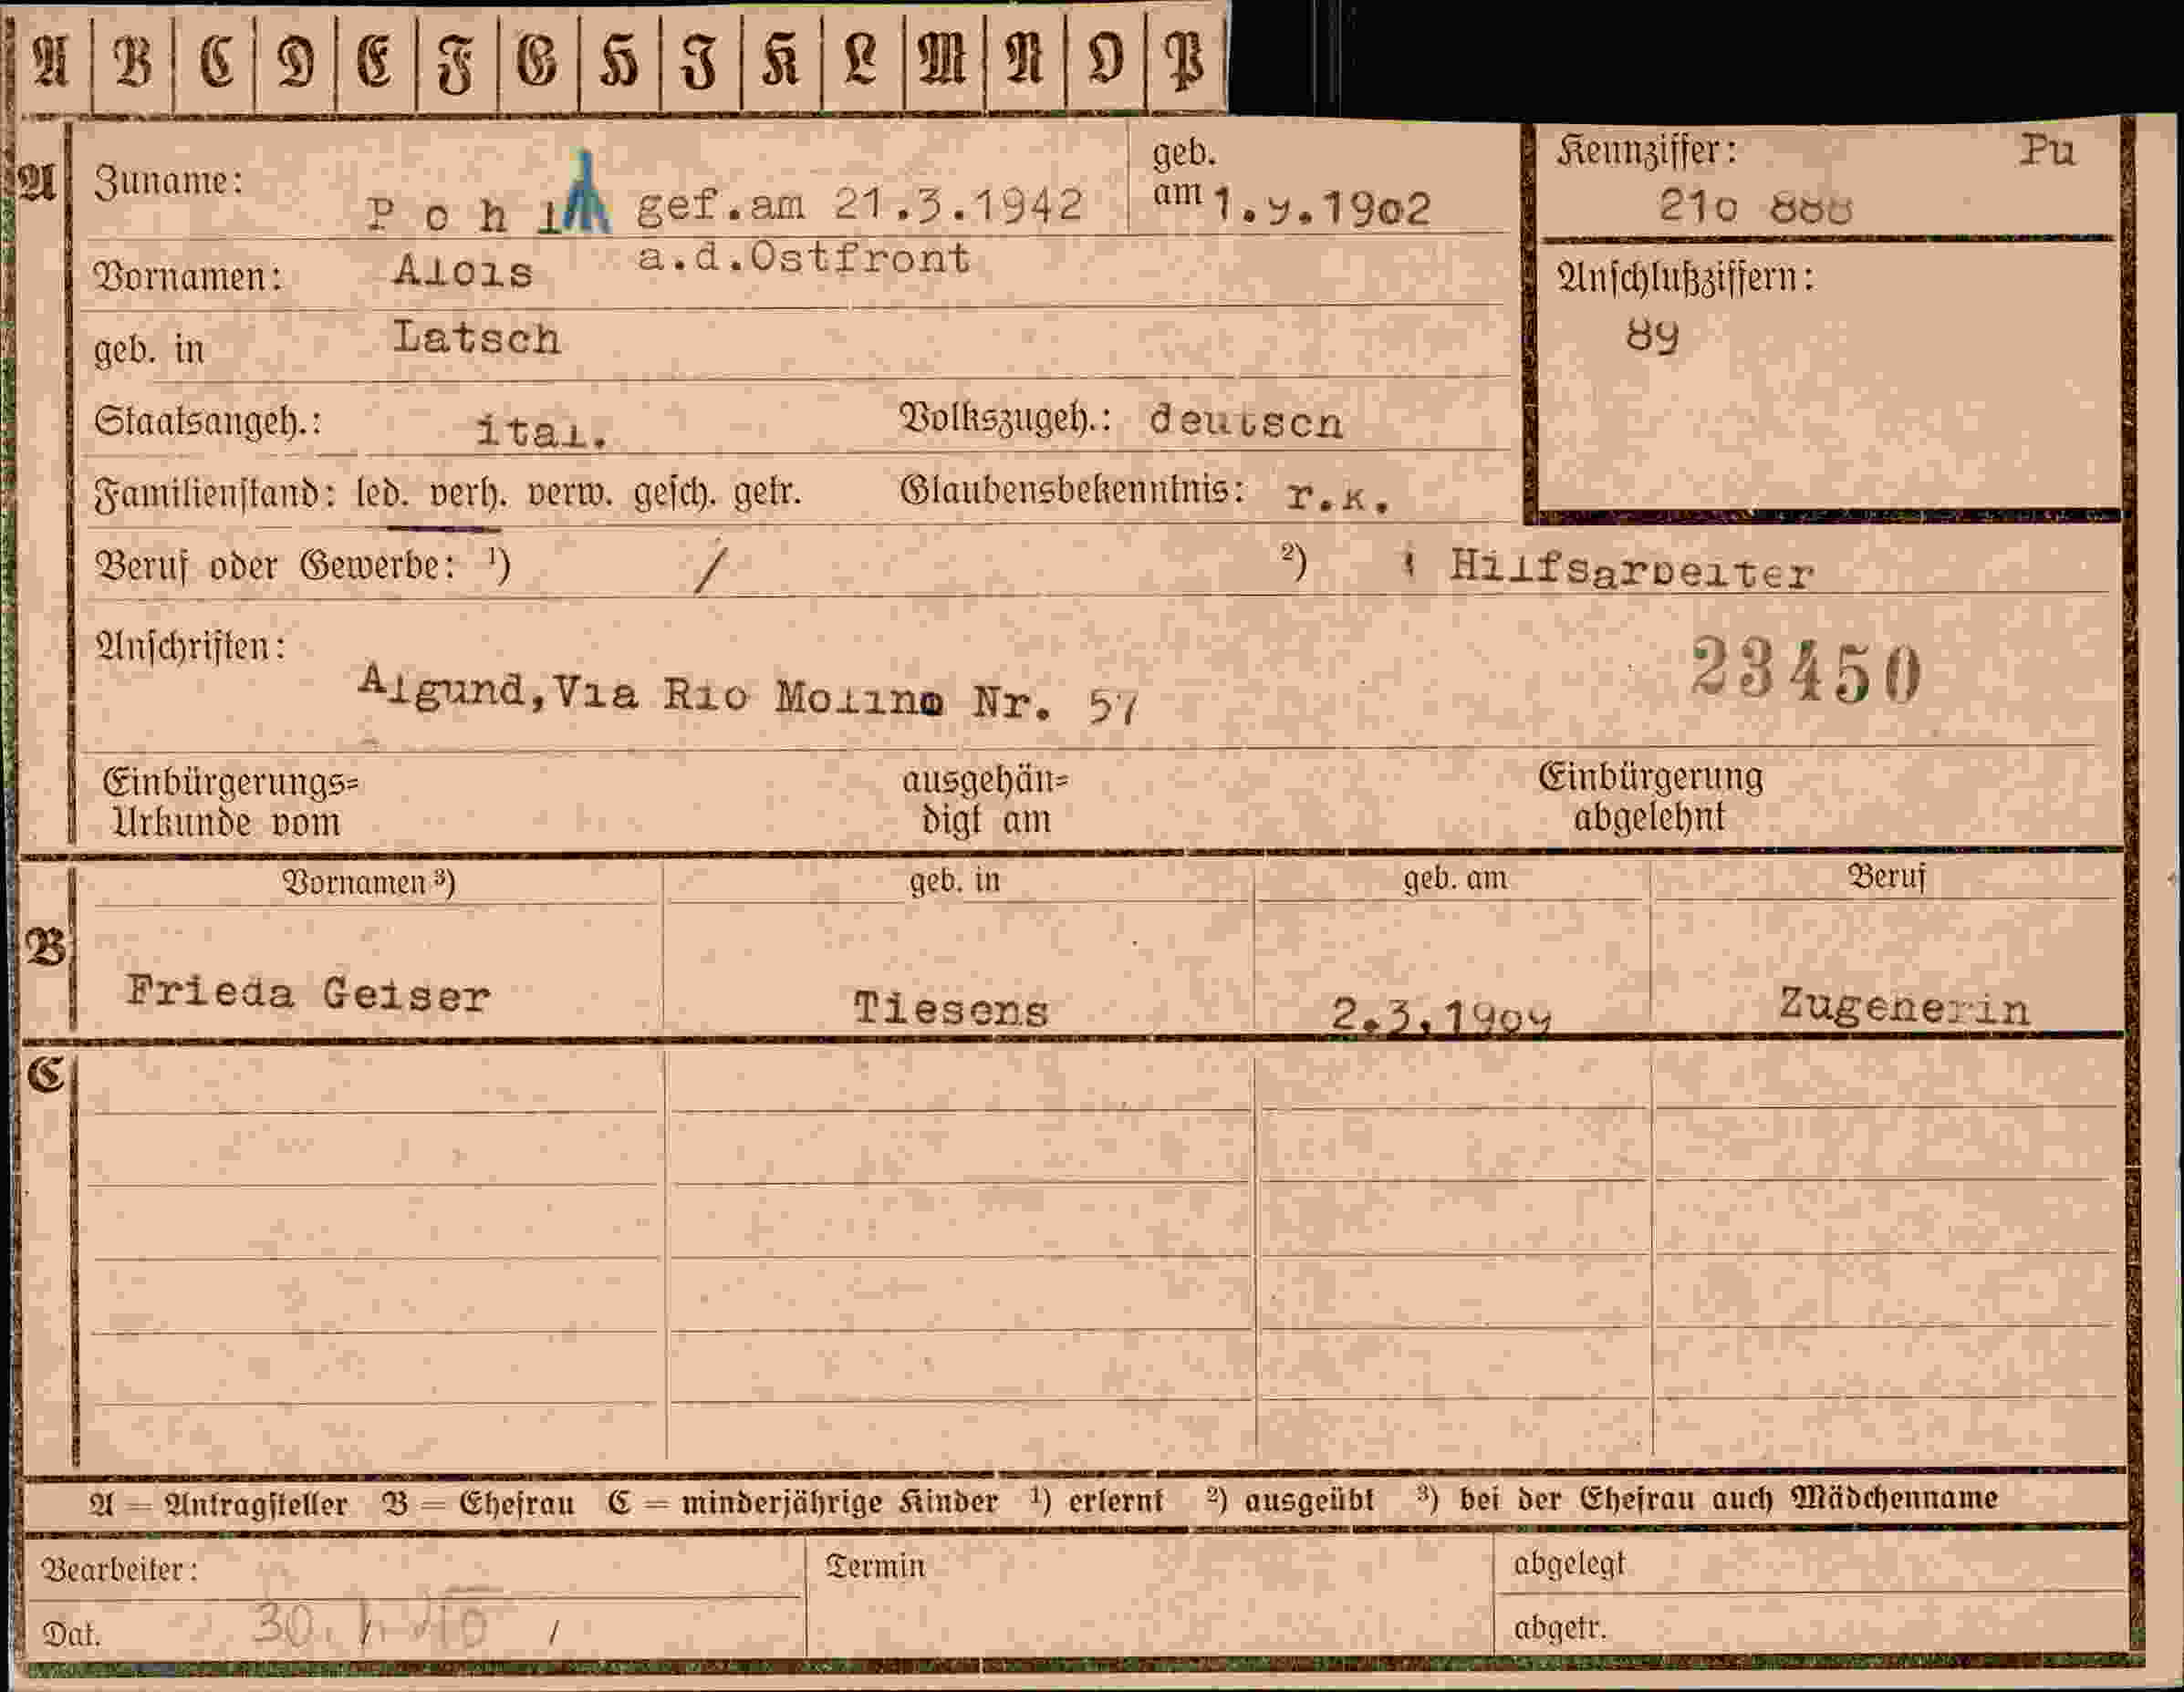 A B C D E F G H I K L M N O P
A Zuname: Pohl gef.am 21.3.1942 geb. am 1.9.1902
Kennziffer: Pu
210 888
Vornamen: Alois a.d.Ostfront
Anschlußziffern:
89
geb. in Latsch
Staatsangeh.: ital. Volkszugeh.: deutsch
Familienstand: led. verh. verw. gesch. getr. Glaubensbekenntnis: r.k.
Beruf oder Gewerbe: ¹) / ²) Hilfsarbeiter
Anschriften:
23450
Algund,Via Rio Molino Nr. 57
Einbürgerungs= ausgehän= Einbürgerung
Urkunde vom digt am abgelehnt
Vornamen ³) geb. in geb. am Beruf
B
Frieda Geiser Tiesens 2.3.1909 Zugeherin
C
A = Antragsteller B = Ehefrau C = minderjährige Kinder ¹) erlernt ²) ausgeübt ³) bei der Ehefrau auch Mädchenname
Bearbeiter: Termin abgelegt
Dat. 30. abgetr.